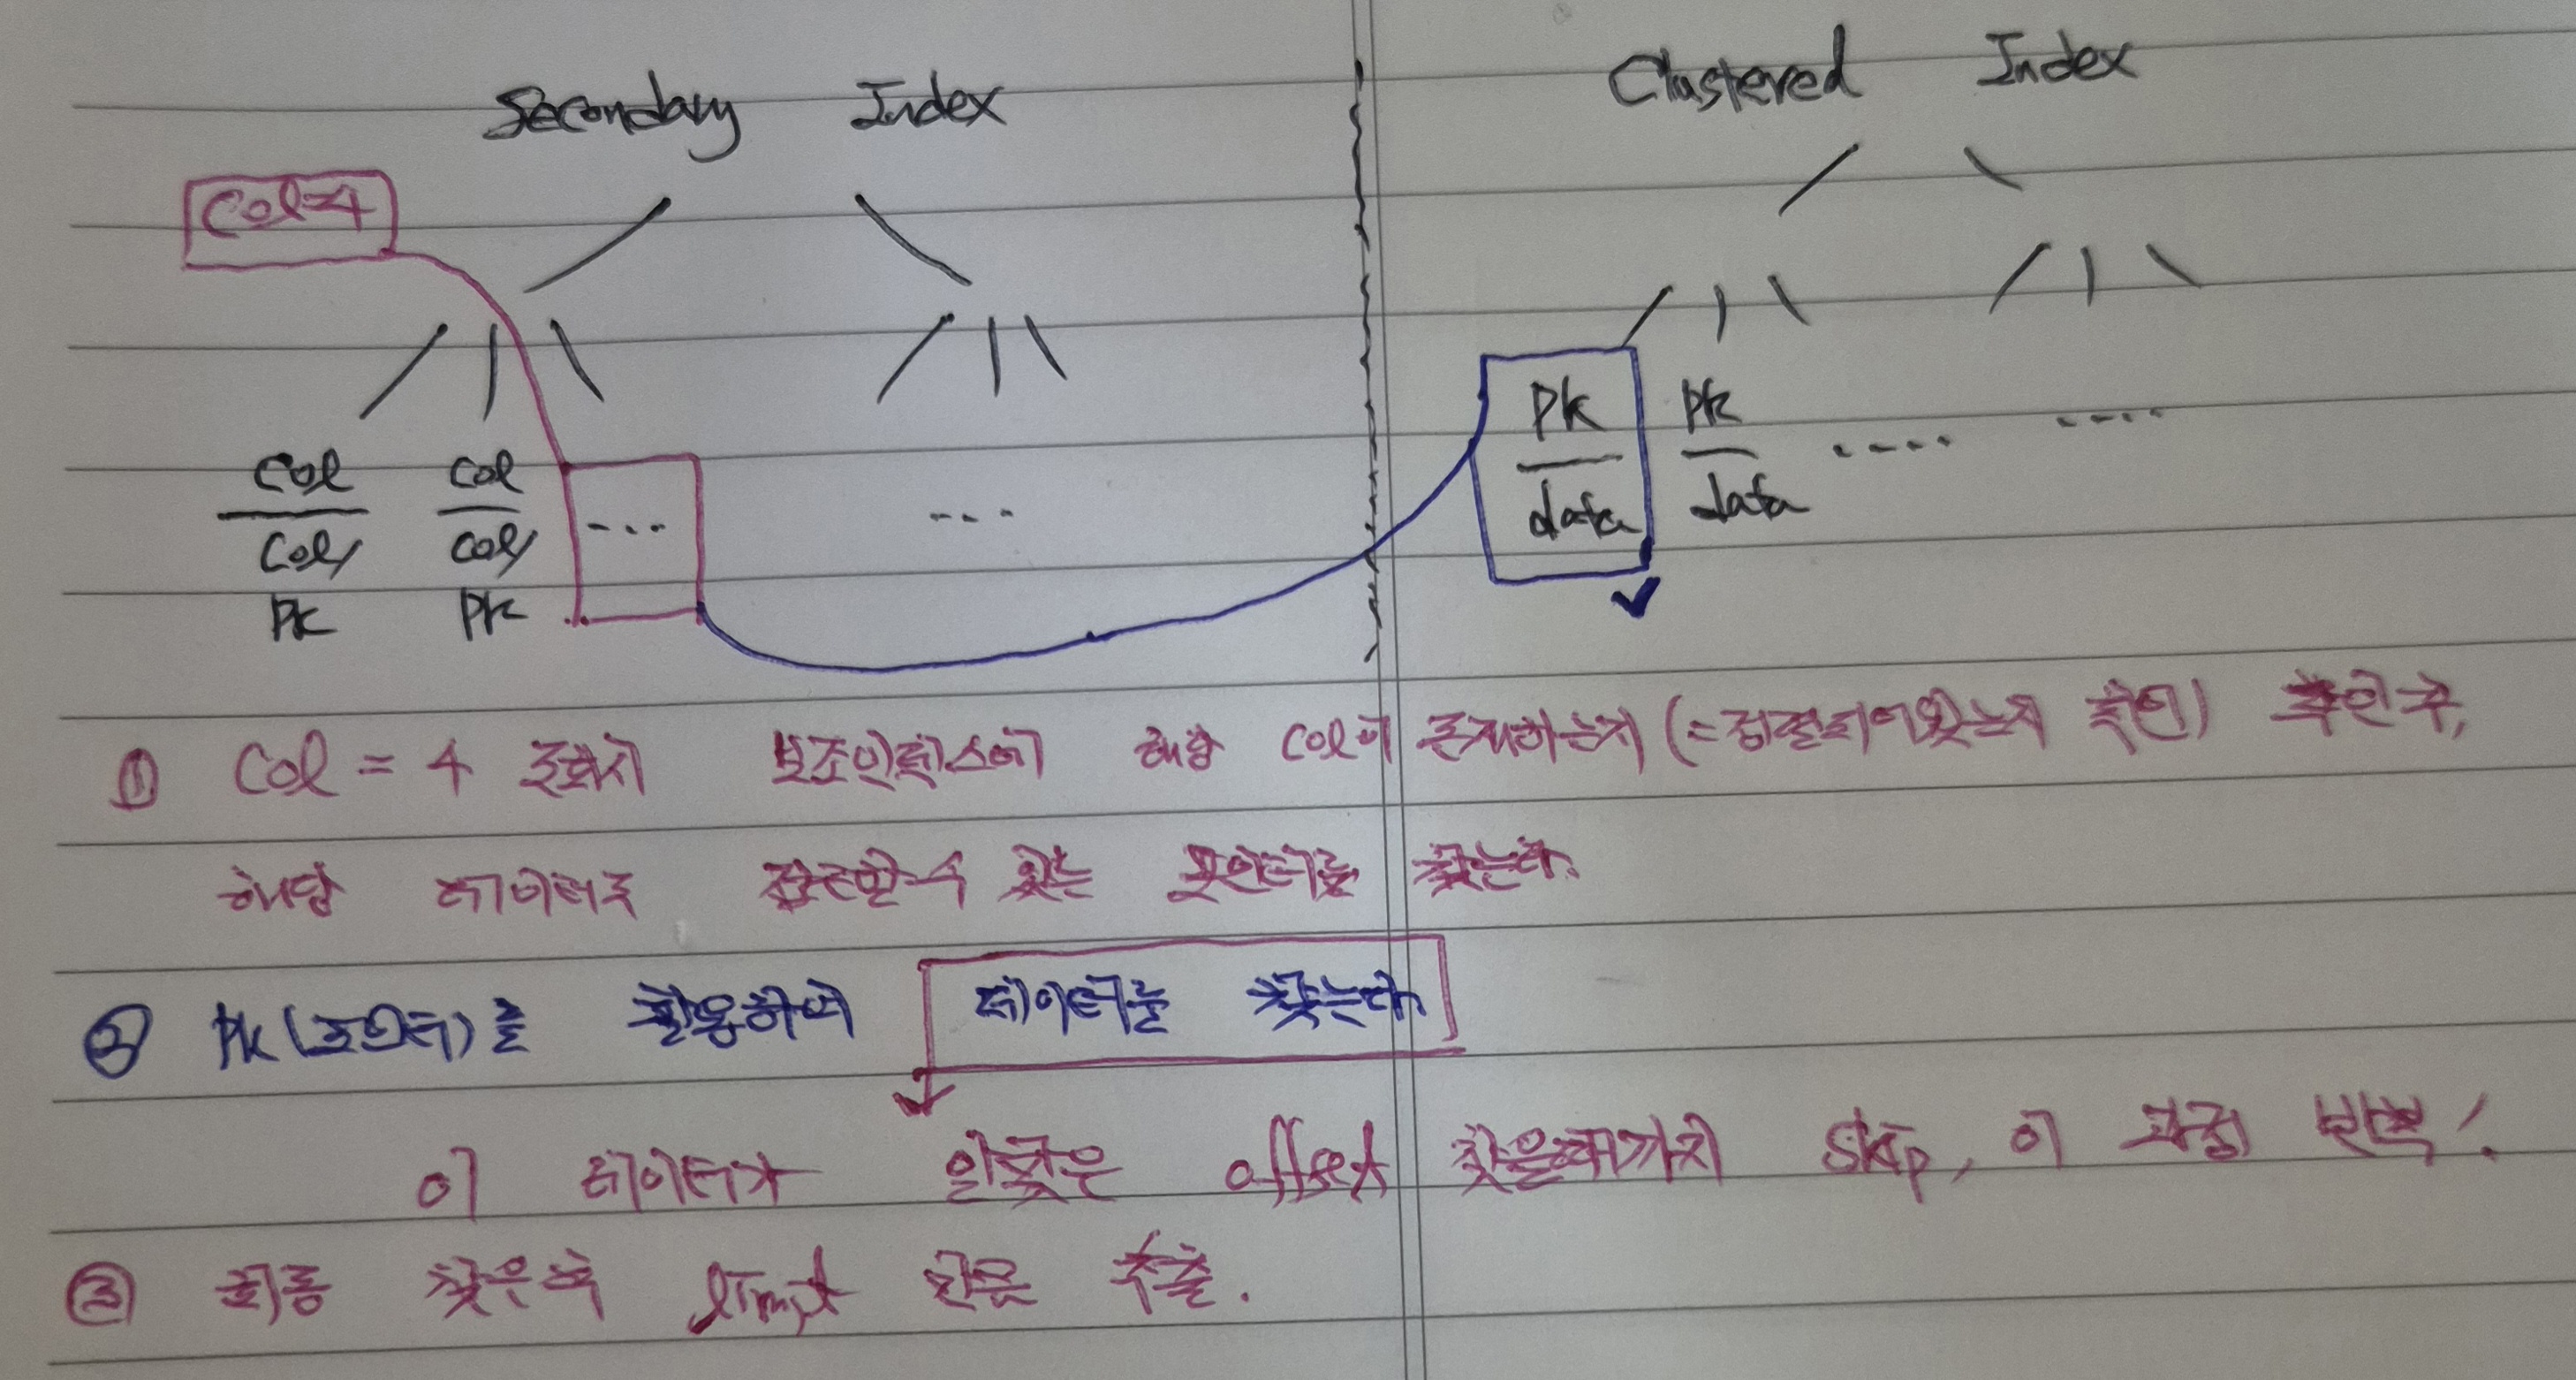 Secondary Index
Clustered Index
Col=4
Col Col
Col/ Col/
PK PK
...
...
PK PK
data data
....
....
① Col = 4 조회시 보조인덱스에 해당 Col이 존재하는지 (=정렬되어있는지 확인) 확인후,
해당 데이터로 접근할수 있는 포인터를 찾는다.
② PK(포인터)를 활용하여 데이터를 찾는다.
이 데이터가 알맞은 offset 찾을때까지 skip, 이 과정 반복!
③ 최종 찾은후 limit 만큼 추출.